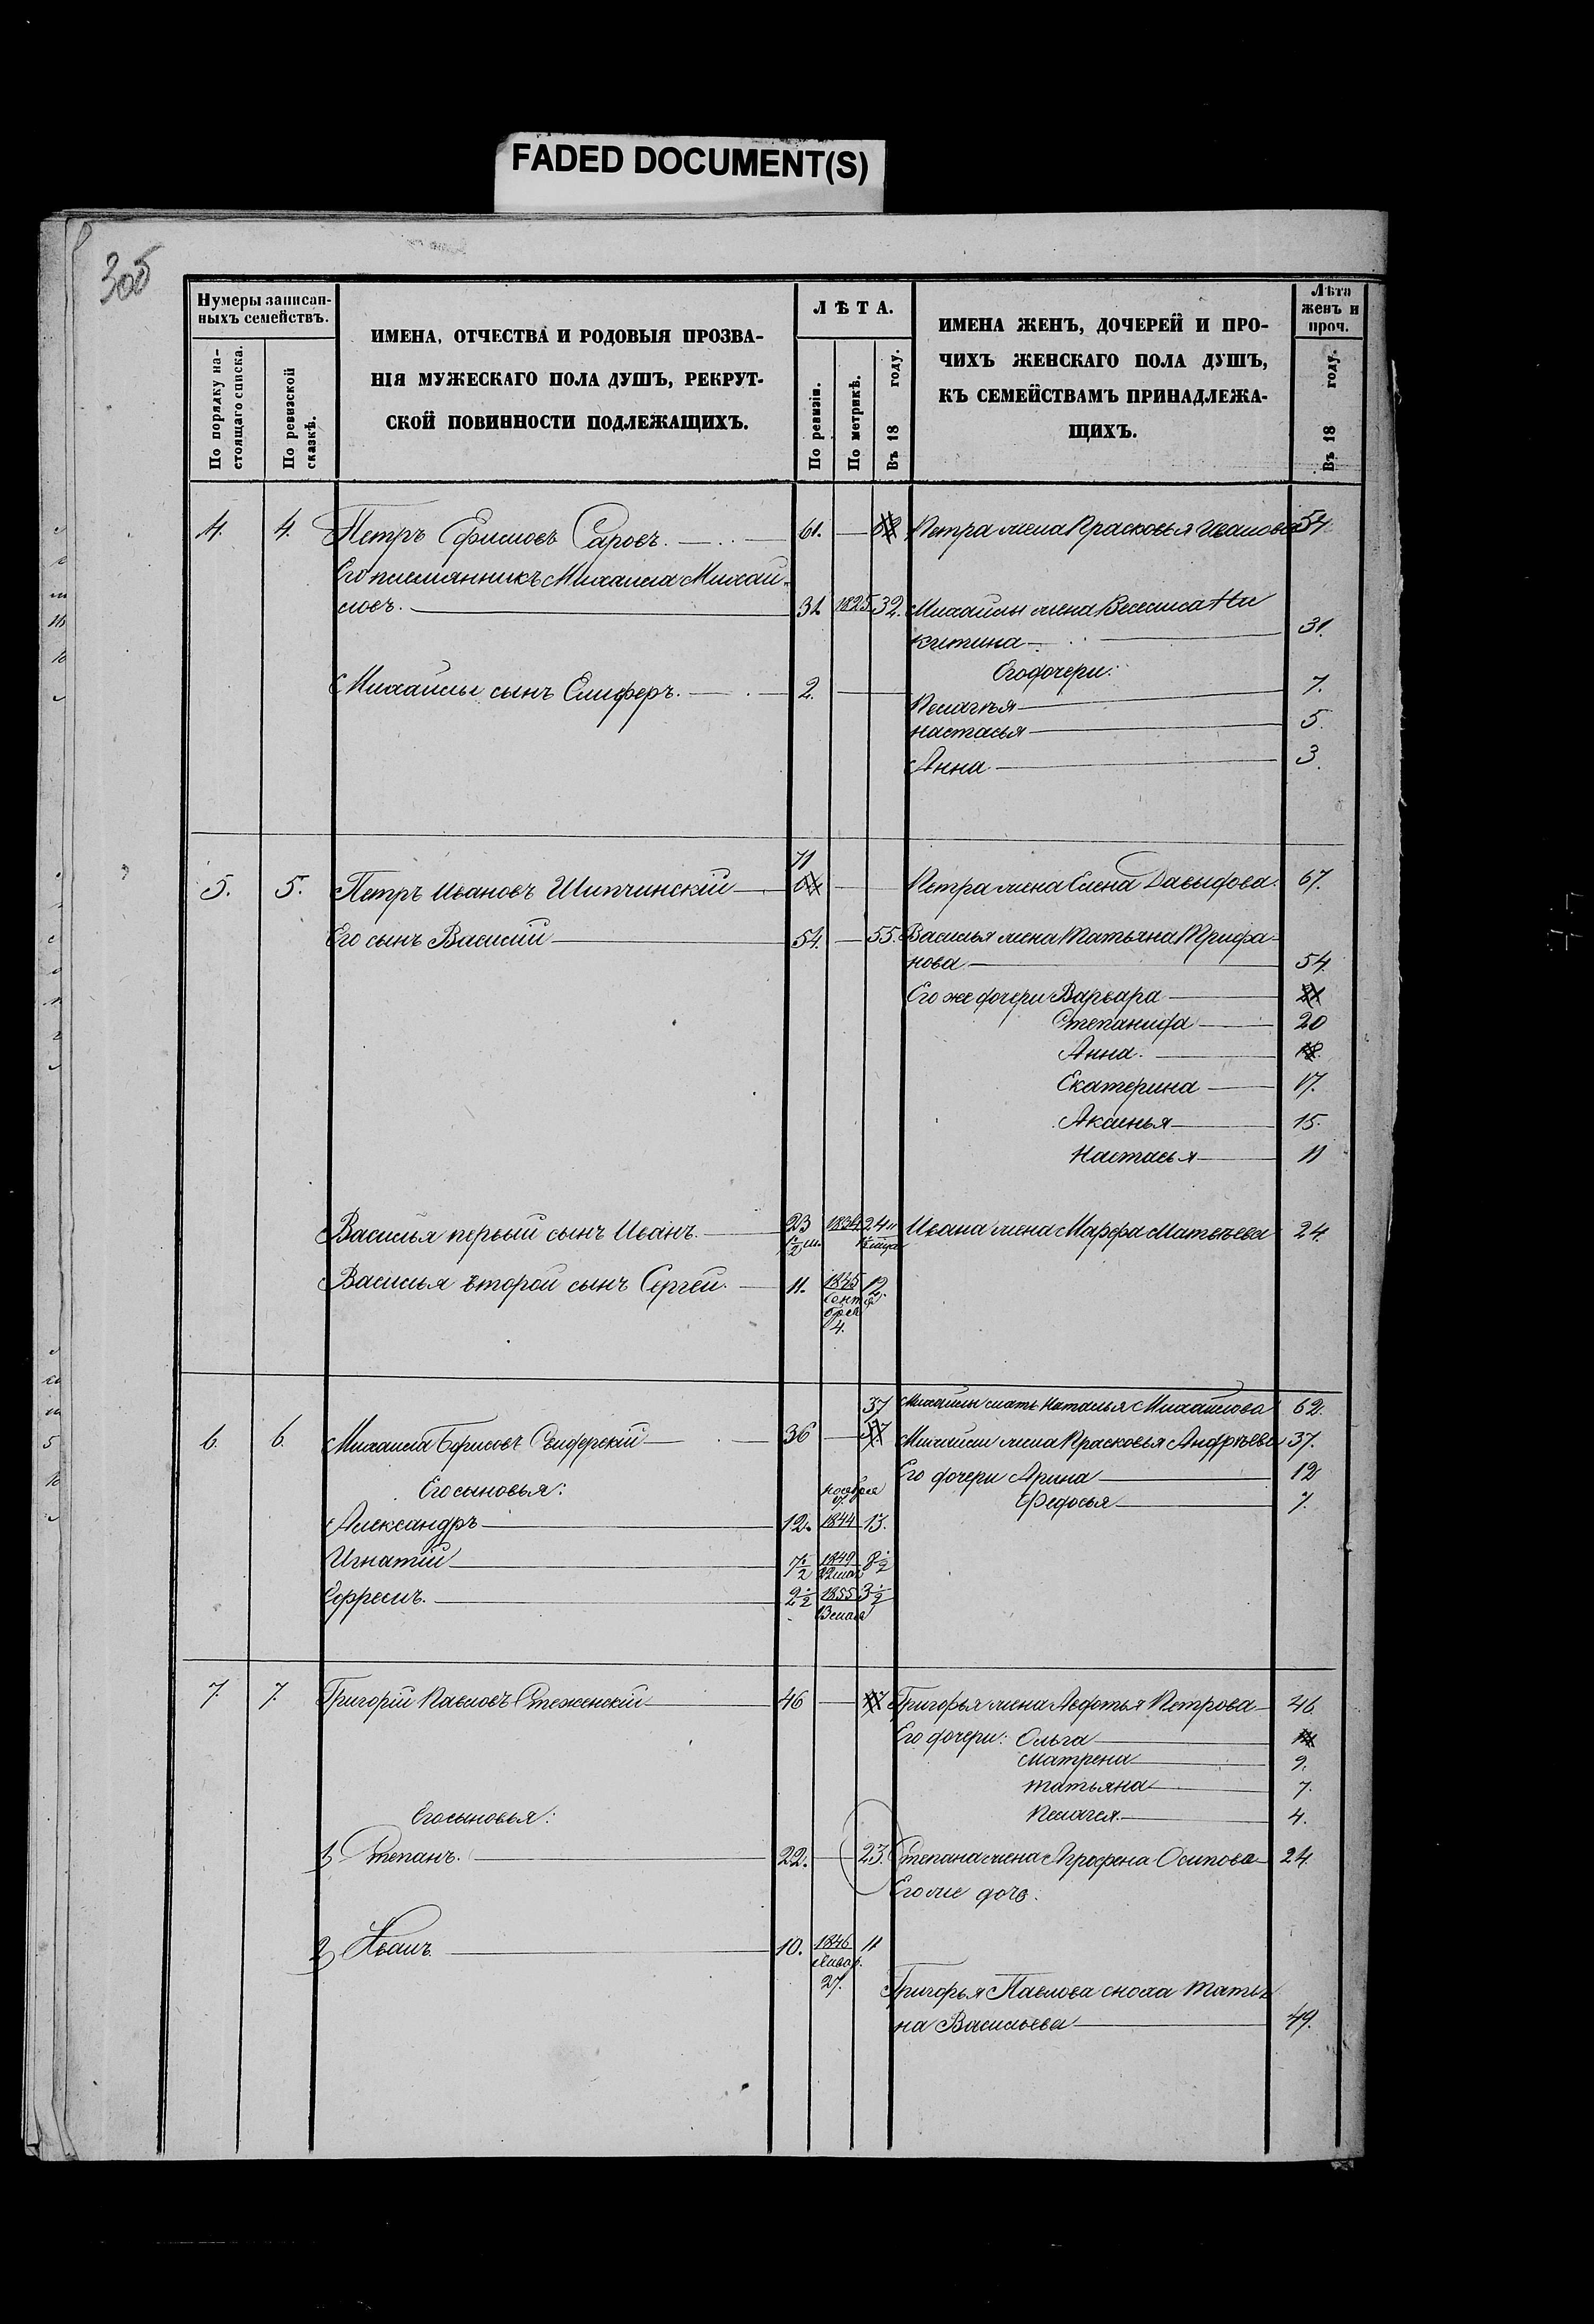 FADED DOCUMENT(S)
305
Нумеры записан-
ныхъ семействъ.
По порядку на-
стоящаго списка.
По ревизской
сказкѣ.
ИМЕНА, ОТЧЕСТВА И РОДОВЫЯ ПРОЗВА-
НІЯ МУЖЕСКАГО ПОЛА ДУШЪ, РЕКРУТ-
СКОЙ ПОВИННОСТИ ПОДЛЕЖАЩИХЪ.
ЛѢТА.
По ревизіи.
По метрикѣ.
Въ 18 году.
ИМЕНА ЖЕНЪ, ДОЧЕРЕЙ И ПРО-
ЧИХЪ ЖЕНСКАГО ПОЛА ДУШЪ,
КЪ СЕМЕЙСТВАМЪ ПРИНАДЛЕЖА-
ЩИХЪ.
Лѣта
женъ и
проч.
Въ 18 году.
4. 4. Петръ Ефимовъ Саровъ. 61. Петра жена Прасковья Иванова 54.
Его племянникъ Михаила Михай-
ловъ. 31 1825 32. Михайлы жена Василиса Ни
китина 31.
Его дочери:
Михайлы сынъ Елиферъ. 2. Пелагѣя 7.
Настасья 5.
Анна 3.
71
5. 5. Петръ Ивановъ Шипчинскій Петра жена Елена Давыдова. 67.
Его сынъ Василій 54. 55. Василья жена Татьяна Трифа
нова 54.
Его же дочери Варвара 21
Степанида 20
Анна. 18.
Екатерина 17.
Аксинья 15.
Настасья 11
Василья первый сынъ Иванъ. 23 1834 24 Ивана жена Марфа Матвѣева 24.
Василья второй сынъ Сергей. 11. 1845 12.
Сент
ября
4.
37 Михайлы мать Наталья Михайлова 62.
6. 6. Михаила Борисовъ Свидерскій 36 37 Михайлы жена Прасковья Андрѣева 37.
Его дочери Арина 12
Его сыновья: ноября Федосья 7.
Александръ 12. 1844 13.
Игнатій 7½ 1849 8½
22 мая
Ефремъ. 2½ 1855 3½
13 мая
7. 7. Григорій Павловъ Стеженскій 46 47 Григорья жена Авдотья Петрова 46.
Его дочери: Ольга
Матрена 9.
Татьяна 7.
Его сыновья: Пелагея. 4.
1, Степанъ. 22. 23. Степана жена Агрофена Осипова 24.
Его же дочь:
2, Иванъ. 10. 1846 11
Январ.
27.
Григорья Павлова сноха Татья
на Васильева 49.